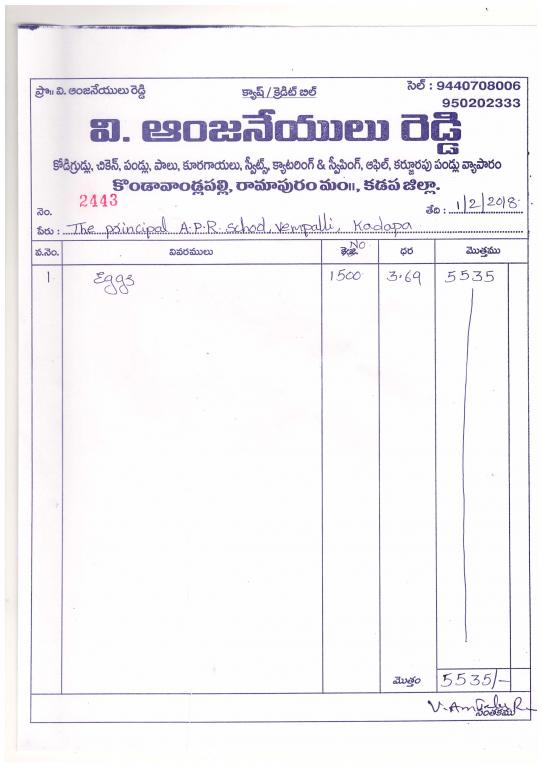 ప్రొ॥ వి. ఆంజనేయులు రెడ్డి క్యాష్ / క్రెడిట్ బిల్ సెల్ : 9440708006
950202333
వి. ఆంజనేయులు రెడ్డి
కోడిగ్రుడ్లు, చికెన్, పండ్లు, పాలు, కూరగాయలు, స్వీట్స్, క్యాటరింగ్ & స్వీపింగ్, ఆఫిల్, కర్జూరపు పండ్లు వ్యాపారం
కొండావాండ్లపల్లి, రామాపురం మం॥, కడప జిల్లా.
నెం. 2443 తేది : 1/2/2018
పేరు : The principal A.P.R. school, Vempalli, Kadapa
వ.నెం. వివరములు No ధర మొత్తము
1 Eggs 1500 3.69 5535
మొత్తం 5535/-
సంతకము